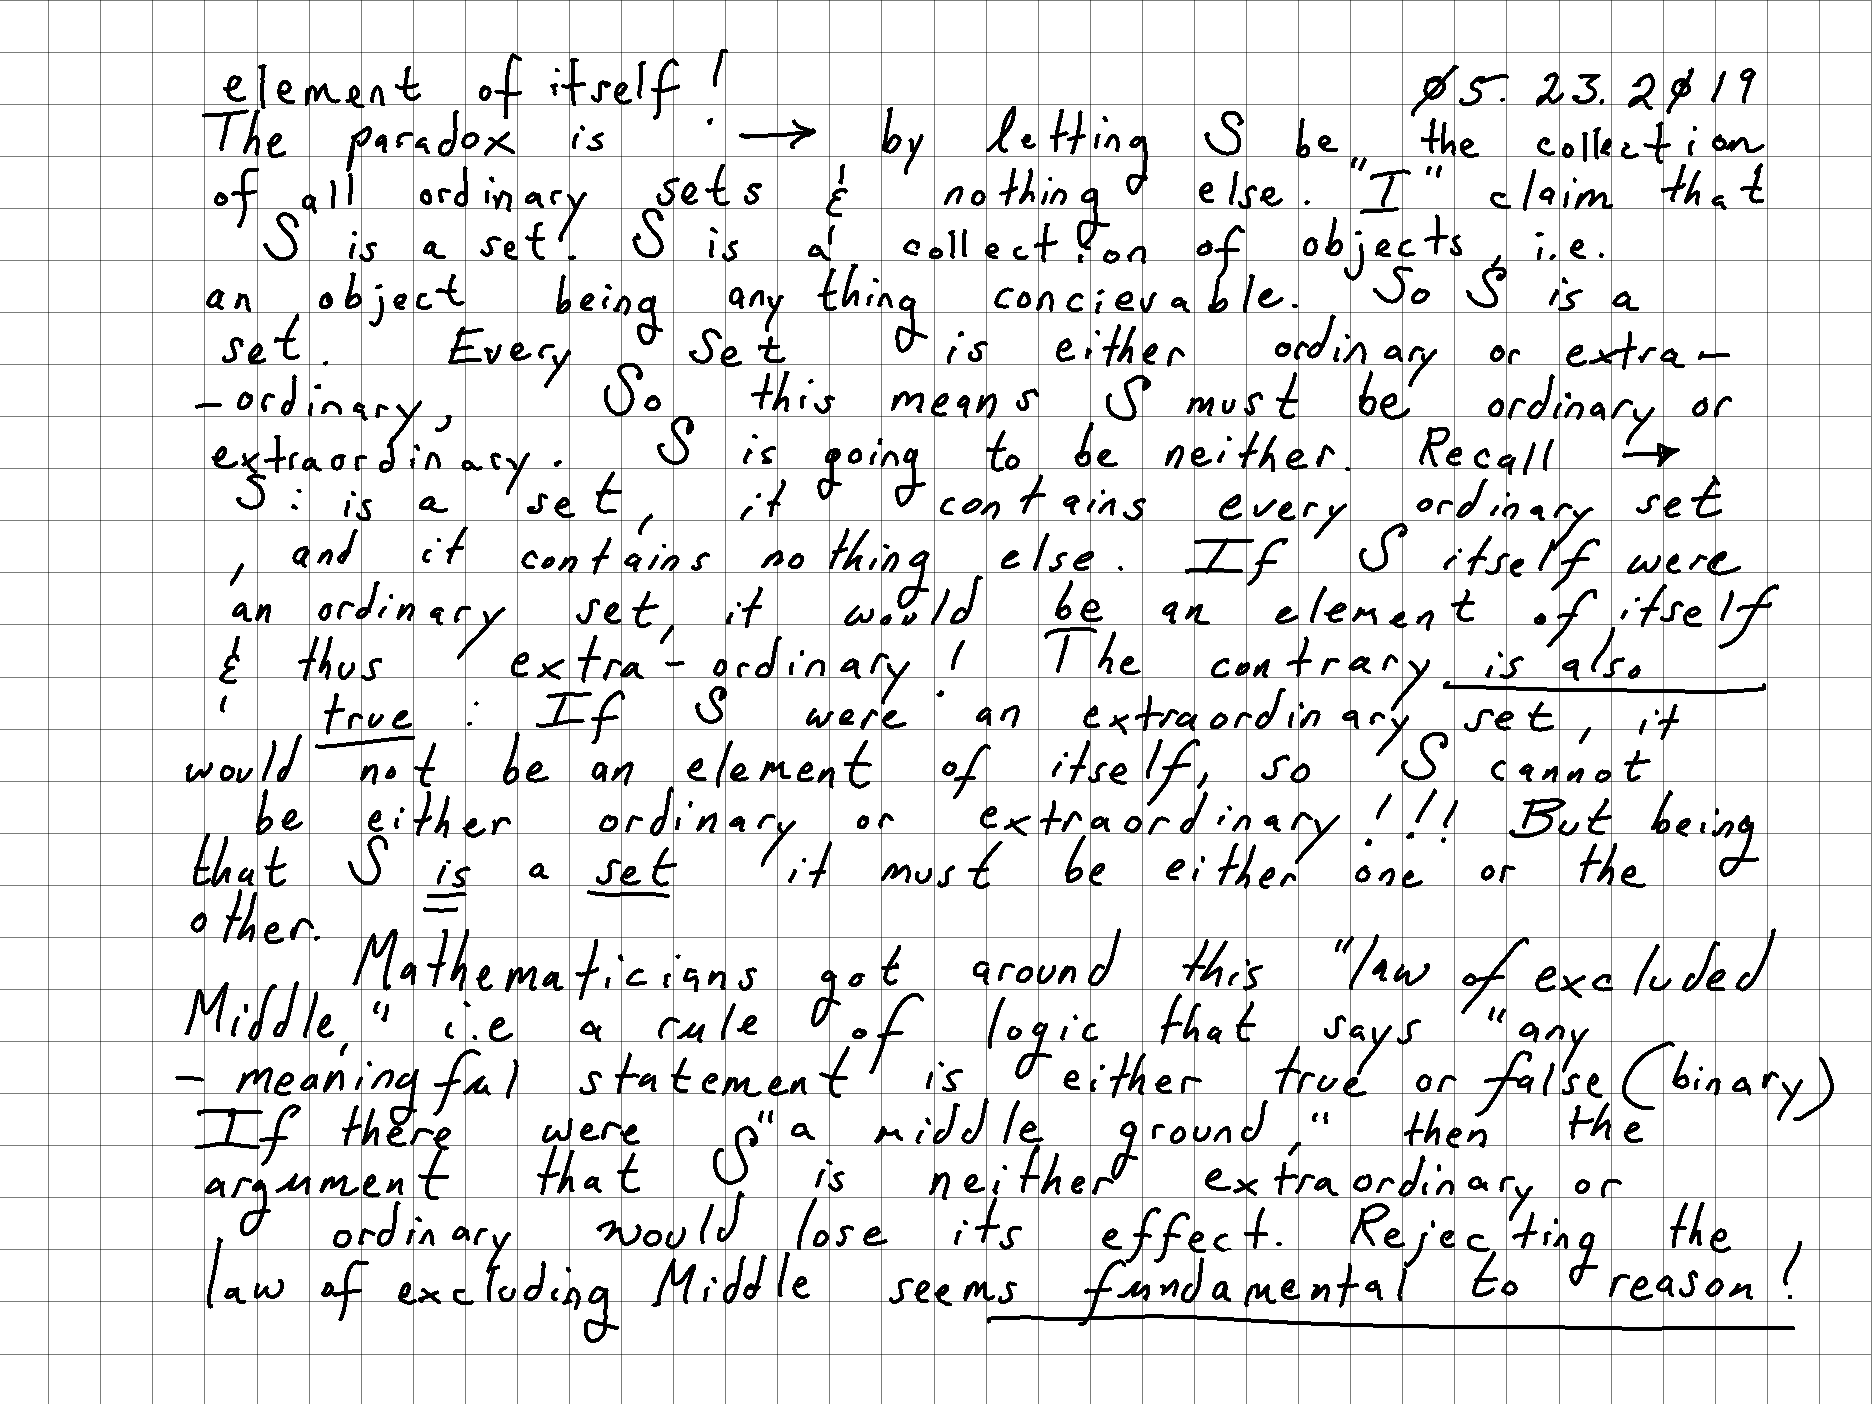 element of itself! Ø5. 23. 2Ø19
The paradox is → by letting S be the collection
of all ordinary sets & nothing else. "I" claim that
S is a set! S is a collection of objects, i.e.
an object being any thing concievable. So S is a
set. Every set is either ordinary or extra-
-ordinary, So this means S must be ordinary or
extraordinary. S is going to be neither. Recall →
S: is a set, it contains every ordinary set
, and it contains nothing else. If S itself were
an ordinary set, it would be an element of itself
& thus extra-ordinary! The contrary is also
true: If S were an extraordinary set, it
would not be an element of itself, so S cannot
be either ordinary or extraordinary!!! But being
that S is a set it must be either one or the
other.
Mathematicians got around this "law of excluded
Middle," i.e a rule of logic that says "any
- meaningful statement is either true or false (binary)
If there were "a middle ground," then the
argument that S is neither extraordinary or
ordinary would lose its effect. Rejecting the
law of excluding Middle seems fundamental to reason!